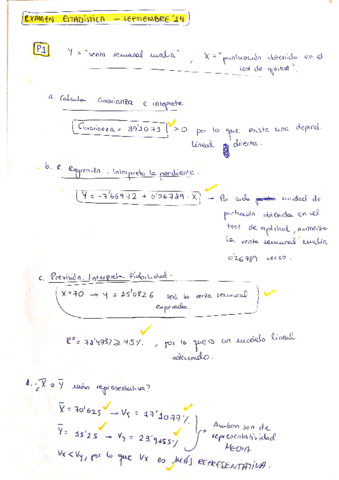 EXAMEN ESTADÍSTICA - SEPTIEMBRE '14
P1
Y = "venta semanal media" , X = "puntuación obtenida en el
test de aptitud".
a. Calcular Covarianza e interprete
Covarianza = 89'1075 > 0 por lo que existe una depend.
lineal directa.
b. R. Regresión. Interpreta la pendiente.
Y = -3'66912 + 0'26789 · X → Por cada unidad de
puntuación obtenida en el
test de aptitud, aumenta
la venta semanal media
0'26789 veces.
c. Previsión. Interpreta Fiabilidad.
X=70 → Y = 15'0826 será la venta semanal
esperada
R² = 75% , por lo que es un modelo lineal
adecuado.
d. ¿X̄ o Ȳ más representativa?
X̄ = 70'625 → Vx = 17'1077%
Ȳ = 15'25 → Vy = %
Ambas son de
representatividad
MEDIA
Vx < Vy, por lo que Vx es MÁS REPRESENTATIVA.